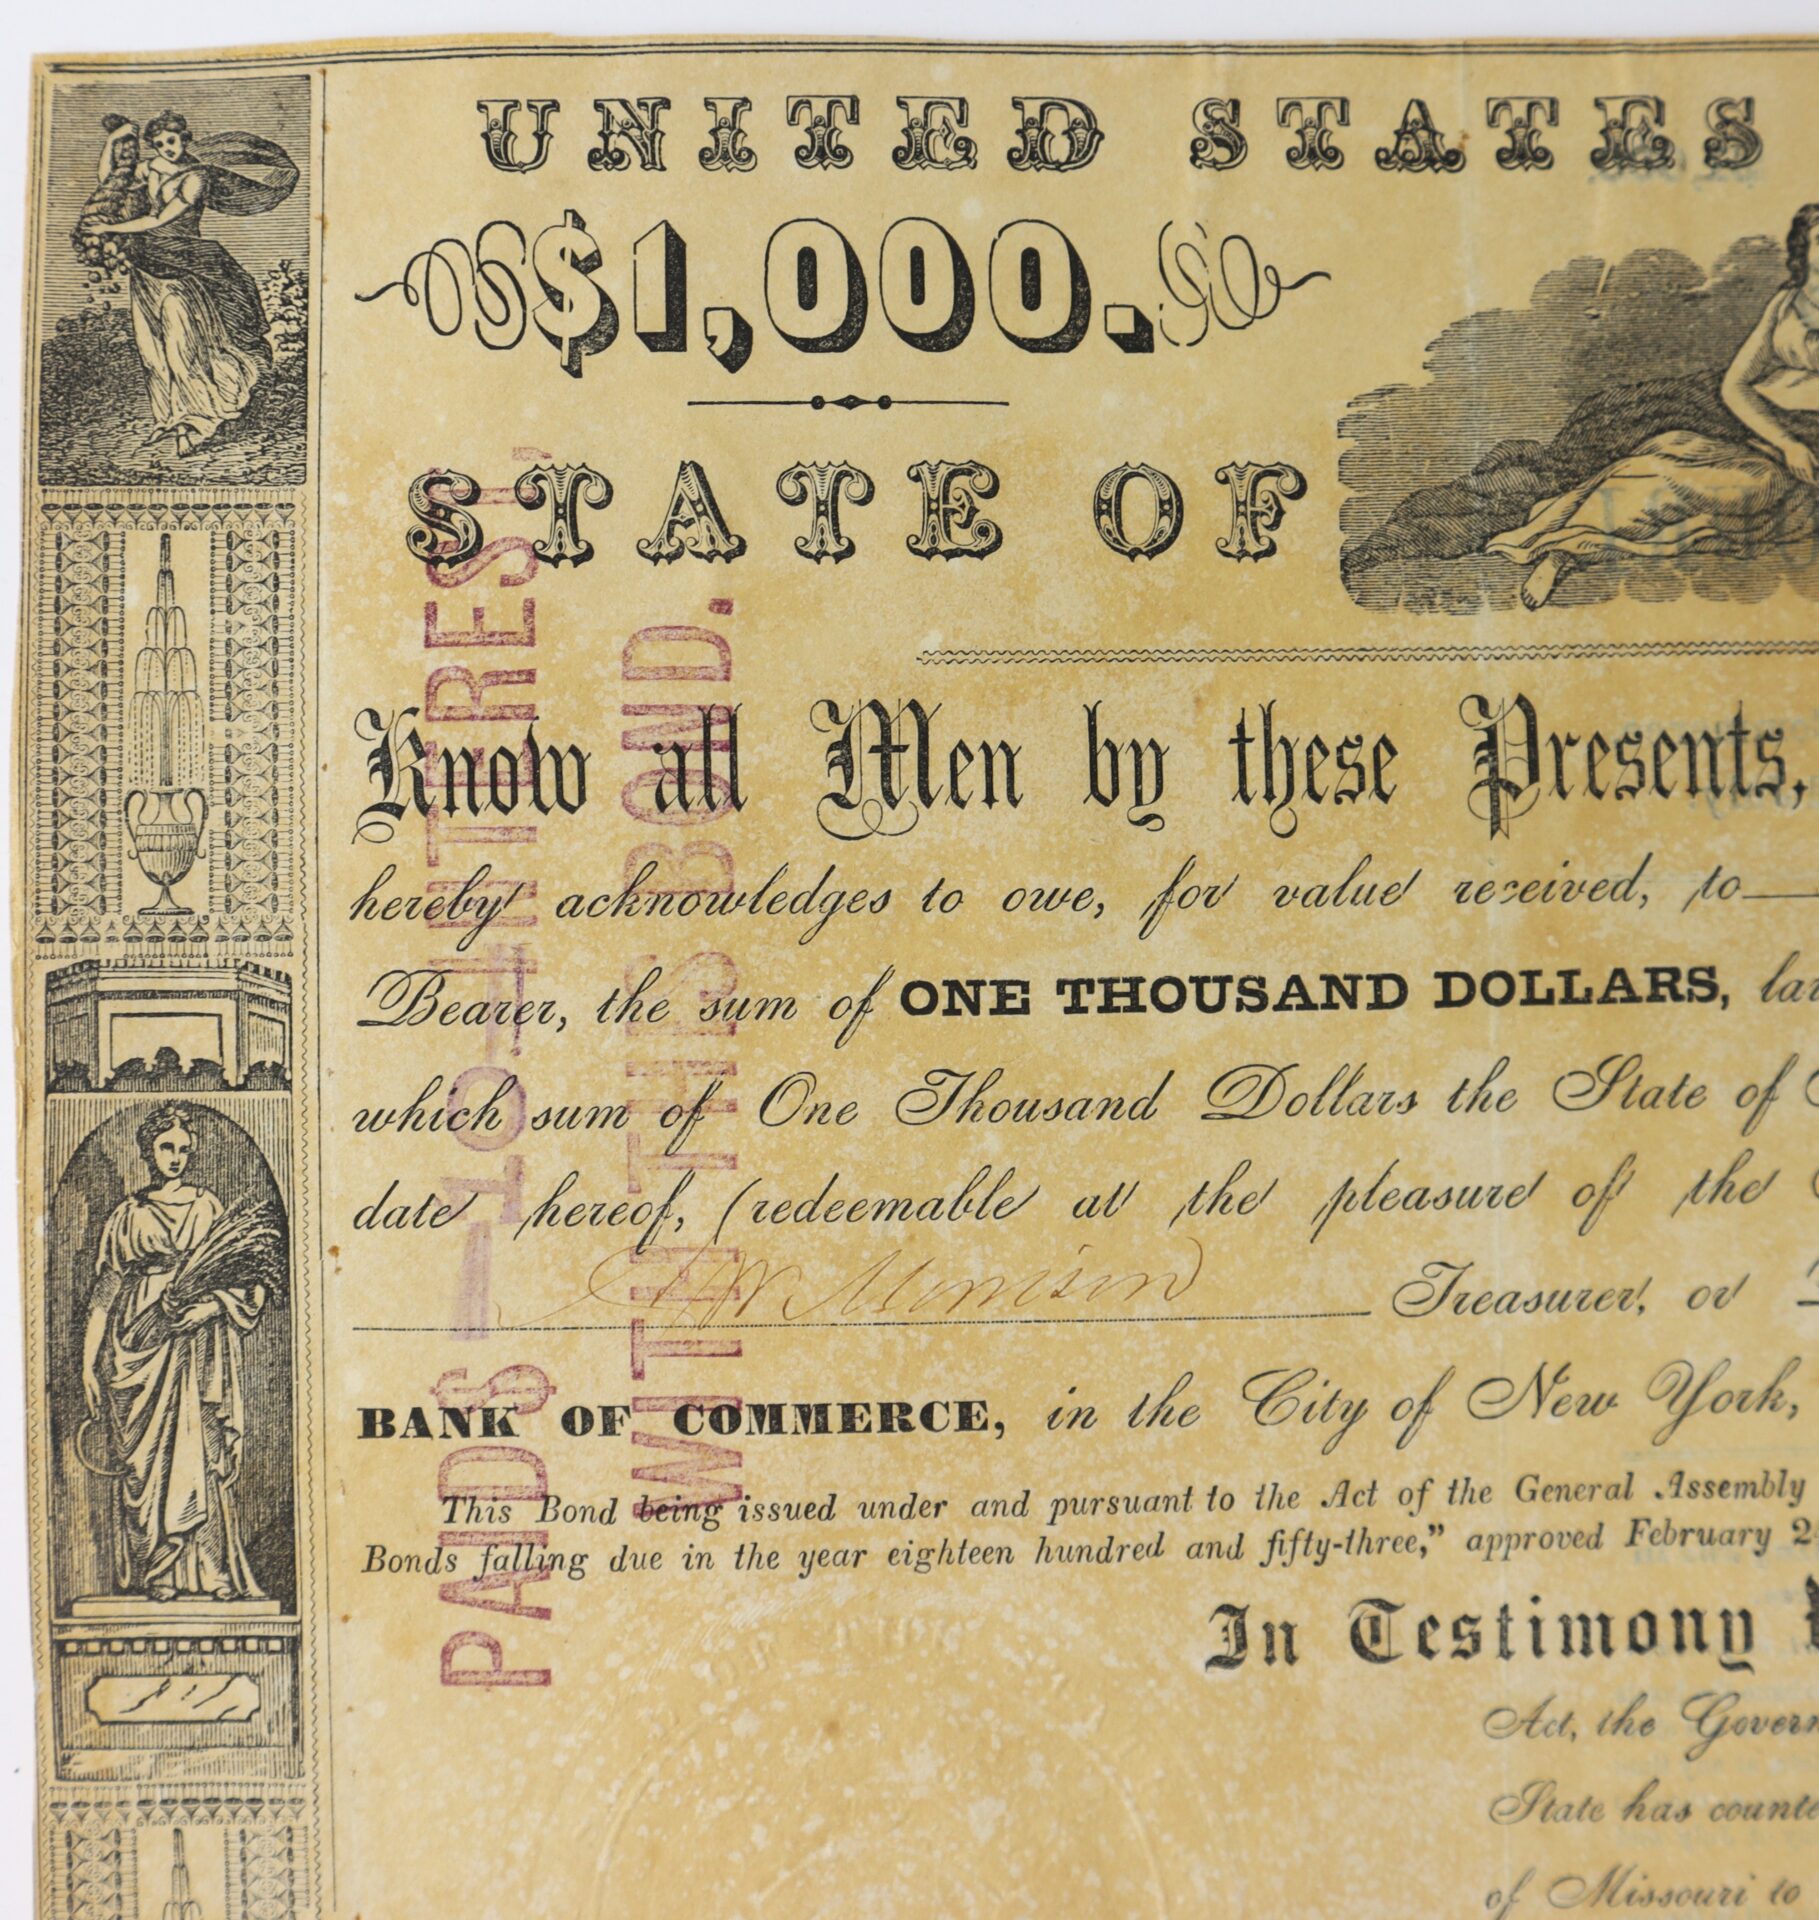 UNITED STATES
$1,000.
STATE OF
Know all Men by these Presents,
hereby acknowledges to owe, for value received, to
Bearer, the sum of ONE THOUSAND DOLLARS, law
which sum of One Thousand Dollars the State of
date hereof, (redeemable at the pleasure of the
Morrison Treasurer, or
BANK OF COMMERCE, in the City of New York,
This Bond being issued under and pursuant to the Act of the General Assembly
Bonds falling due in the year eighteen hundred and fifty-three," approved February 2
In Testimony
Act, the Govern
State has counte
of Missouri to
PAID $ 10 INTEREST
WITH THIS BOND.